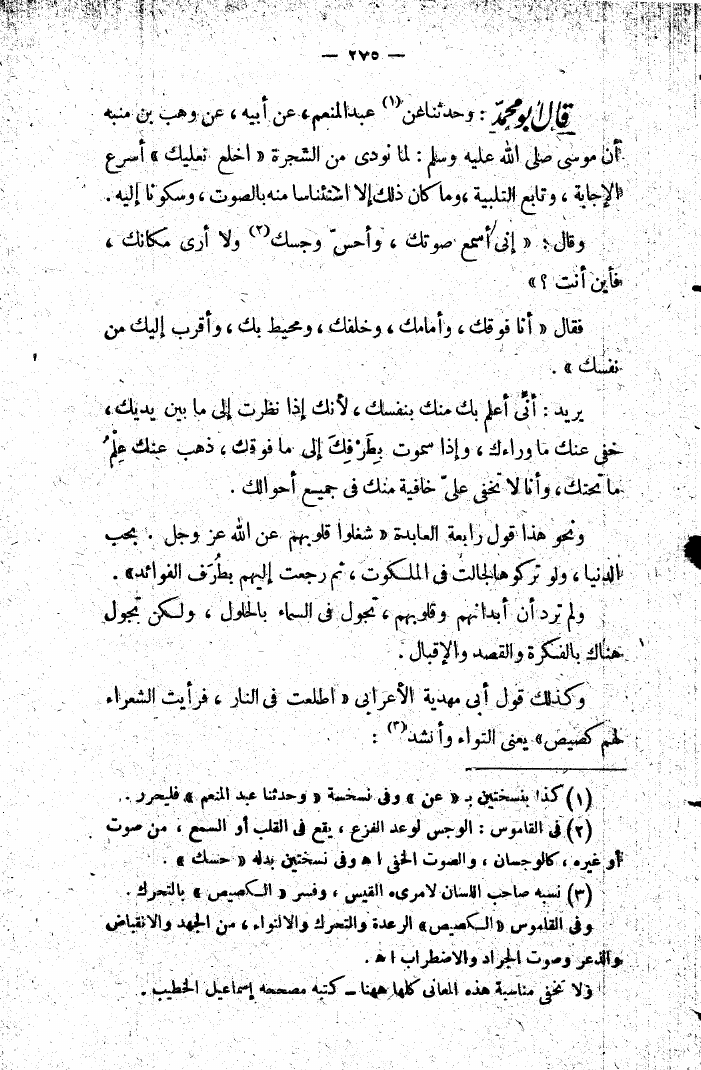 — ٢٧٥ —
قال أبو محمد : وحدثنا عن (١) عبد المنعم ، عن أبيه ، عن وهب بن منبه
أن موسى صلى الله عليه وسلم : لما نودى من الشجرة « اخلع نعليك » أسرع
الإجابة ، وتابع التلبية ، وما كان ذلك إلا استئناسا منه بالصوت ، وسكونا إليه .
وقال : « إنى أسمع صوتك ، وأحسّ وجسك (٢) ولا أرى مكانك ،
فأين أنت ؟ »
فقال « أنا فوقك ، وأمامك ، وخلفك ، ومحيط بك ، وأقرب إليك من
نفسك » .
يريد : أنّى أعلم بك منك بنفسك ، لأنك إذا نظرت إلى ما بين يديك ،
خفى عنك ما وراءك ، وإذا سموت بِطَرْفِكَ إلى ما فوقك ، ذهب عنك عِلْمُ
ما تحتك ، وأنا لا تخفى علىّ خافية منك فى جميع أحوالك .
ونحو هذا قول رابعة العابدة « شغلوا قلوبهم عن الله عز وجل . بحب
الدنيا ، ولو تركوها لجالت فى الملكوت ، ثم رجعت إليهم بطُرَف الفوائد » .
ولم ترد أن أبدانهم وقلوبهم ، تجول فى السماء بالحلول ، ولكن تجول
هناك بالفكرة والقصد والإقبال .
وكذلك قول أبى مهدية الأعرابى « اطلعت فى النار ، فرأيت الشعراء
لهم كصيص » يعنى التواء وأنشد (٣) :
(١) كذا بنسختين بـ « عن » وفى نسخسة « وحدثنا عبد المنعم » فليحرر .
(٢) فى القاموس : الوجس لوعد الفزع ، يقع فى القلب أو السمع ، من صوت
أو غيره ، كالوجسان ، والصوت الخفى ا هـ وفى نسختين بدله « حسك » .
(٣) نسبه صاحب اللسان لامرىء القيس ، وفسر « الكصيص » بالتحرك .
وفى القاموس « الكصيص » الرعدة والتحرك والالتواء ، من الجهد والانقباض
والذعر وصوت الجراد والاضطراب ا هـ .
ولا تخفى مناسبة هذه المعانى كلها ههنا — كتبه مصححه إسماعيل الخطيب .